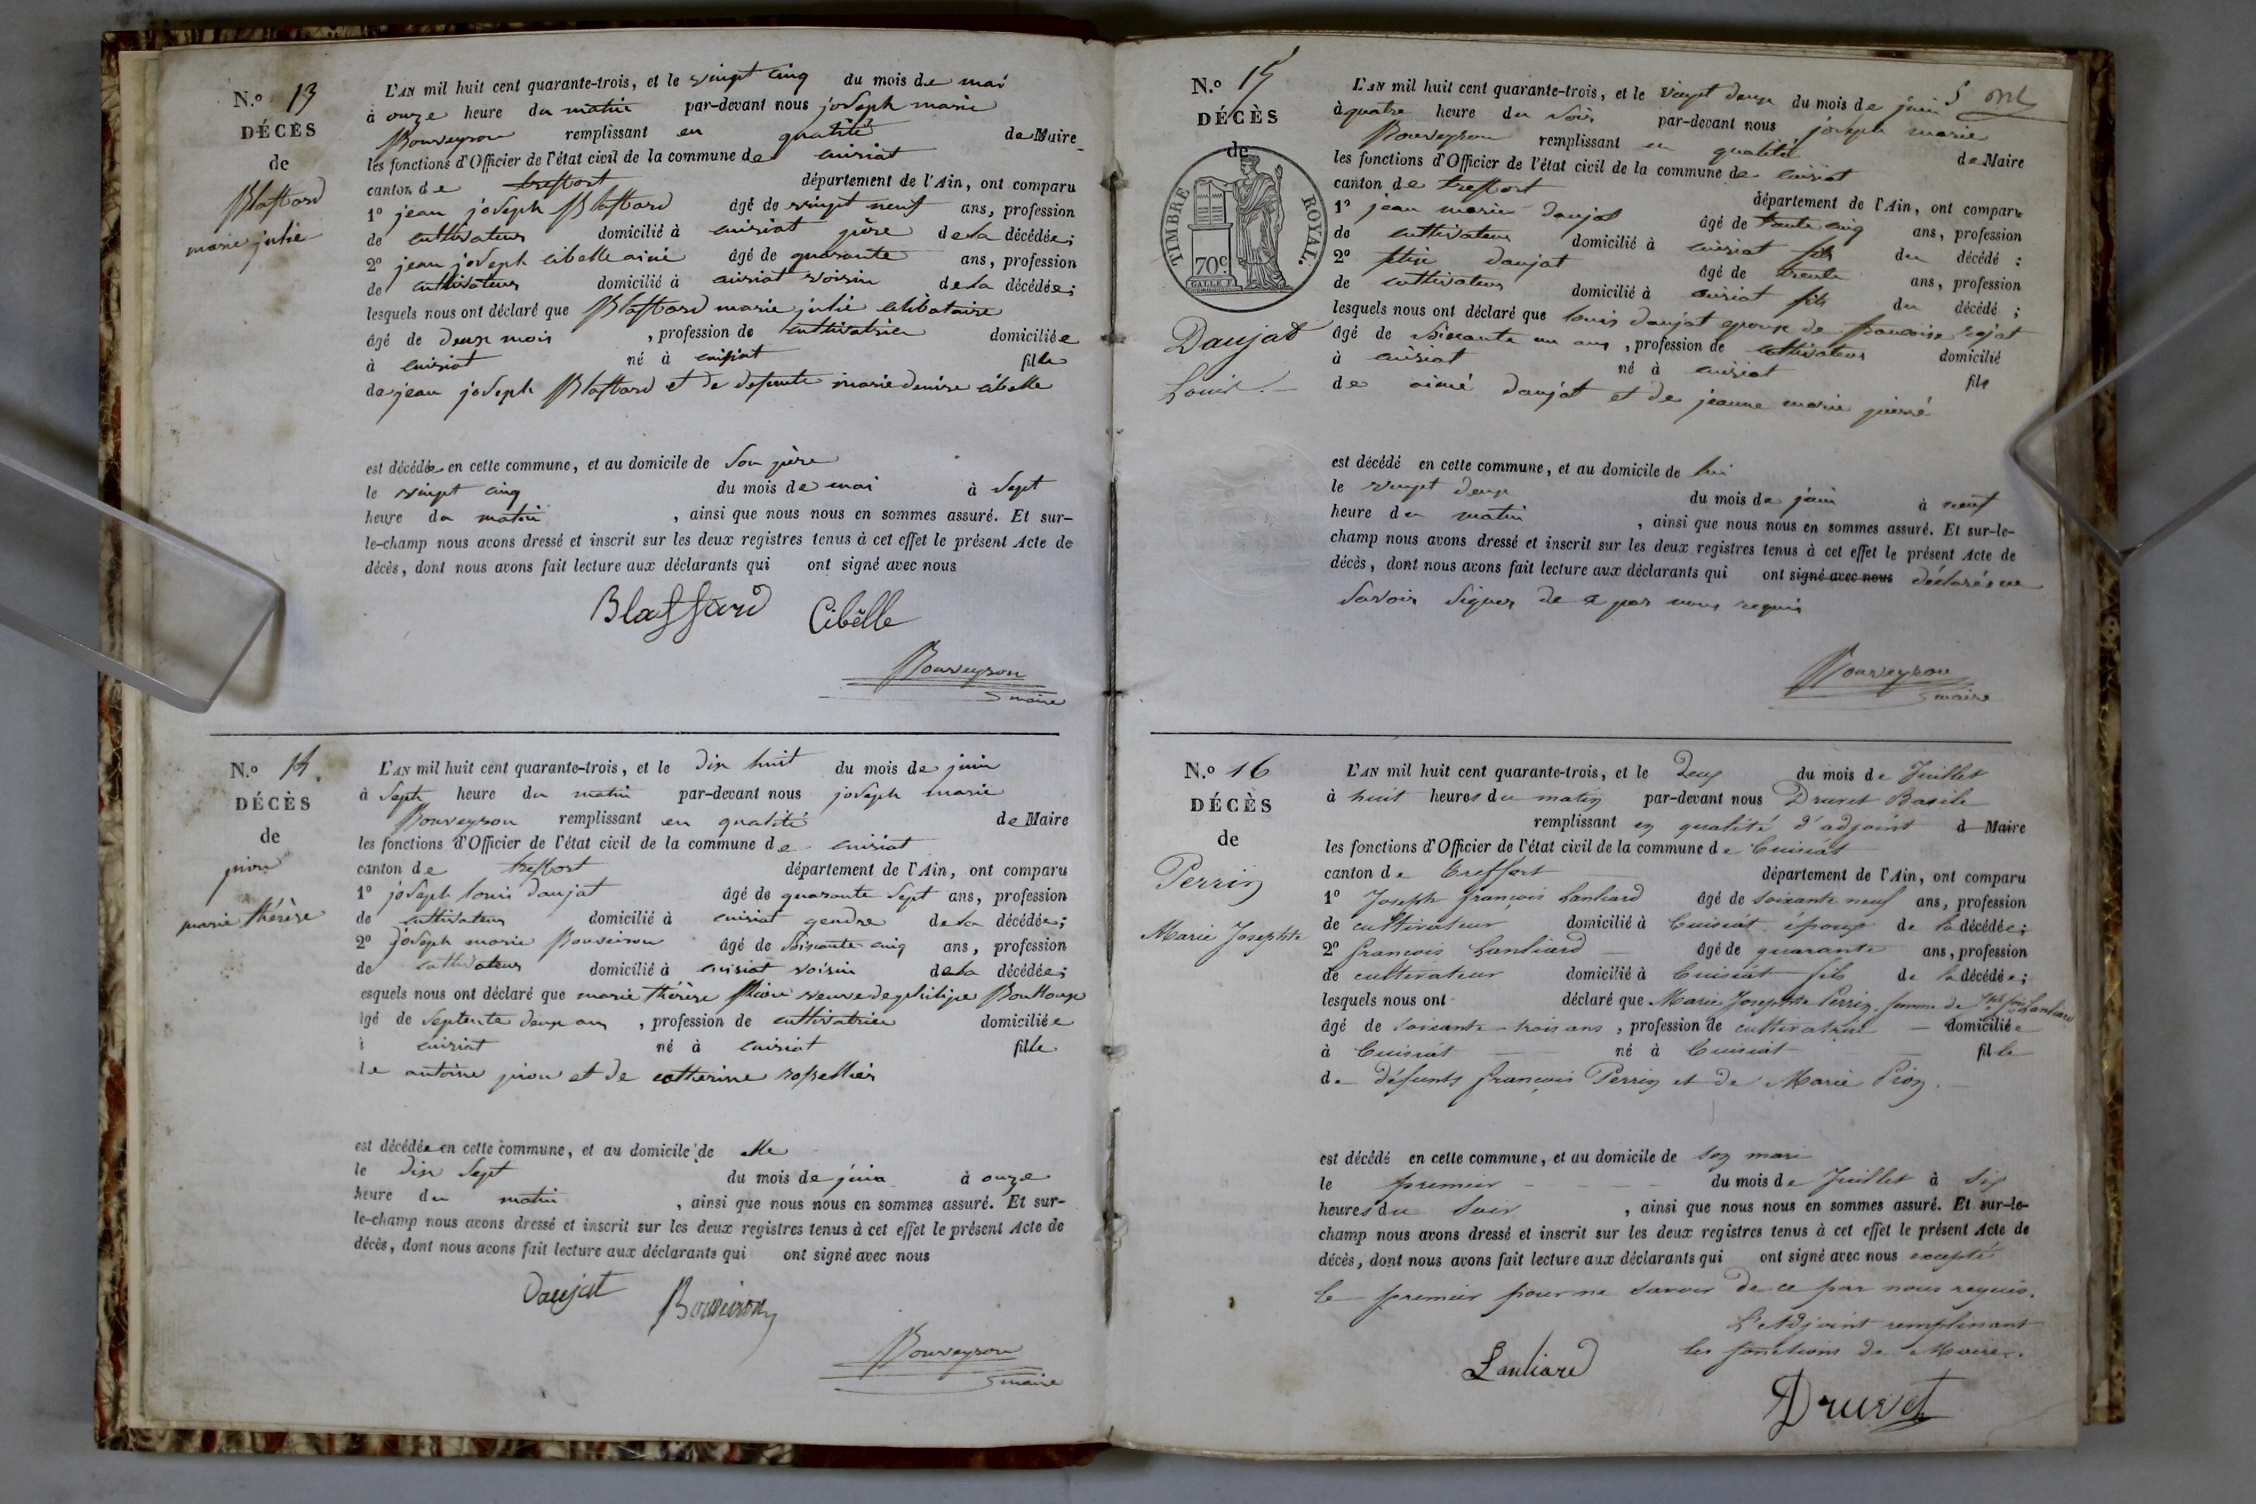 N.º 13
DÉCÈS
de
Blaffard
marie julie
L'AN mil huit cent quarante-trois, et le vingt cinq du mois de mai
à onze heure du matin par-devant nous joseph marie
Bouveyron remplissant en qualité de Maire
les fonctions d'Officier de l'état civil de la commune de cuisiat
canton de treffort département de l'Ain, ont comparu
1º jean joseph Blaffard âgé de vingt neuf ans, profession
de cultivateur domicilié à cuisiat père de la décédée;
2º jean joseph cibelle ainé âgé de quarante ans, profession
de cultivateur domicilié à cuisiat voisin de la décédée;
lesquels nous ont déclaré que Blaffard marie julie célibataire
âgé de deux mois , profession de cultivatrice domiciliée
à cuisiat né à cuisiat fille
de jean joseph Blaffard et de defunte marie denise cibelle
est décédée en cette commune, et au domicile de son père
le vingt cinq du mois de mai à sept
heure du matin , ainsi que nous nous en sommes assuré. Et sur-
le-champ nous avons dressé et inscrit sur les deux registres tenus à cet effet le présent Acte de
décès, dont nous avons fait lecture aux déclarants qui ont signé avec nous
Blaffard Cibelle
Bouveyron
maire
N.º 14
DÉCÈS
de
pion
marie thérèse
L'AN mil huit cent quarante-trois, et le dix huit du mois de juin
à sept heure du matin par-devant nous joseph marie
Bouveyron remplissant en qualité de Maire
les fonctions d'Officier de l'état civil de la commune de cuisiat
canton de treffort département de l'Ain, ont comparu
1º joseph louis daujat âgé de quarante sept ans, profession
de cultivateur domicilié à cuisiat gendre de la décédée;
2º joseph marie Bouveiron âgé de soixante cinq ans, profession
de cultivateur domicilié à cuisiat voisin de la décédée;
esquels nous ont déclaré que marie thérèse pion veuve de philipe
gé de septente deux ans , profession de cultivatrice domiciliée
cuisiat né à cuisiat fille
antoine pion et de catherine
est décédée en cette commune, et au domicile de elle
le dix sept du mois de juin à onze
heure du matin , ainsi que nous nous en sommes assuré. Et sur-
le-champ nous avons dressé et inscrit sur les deux registres tenus à cet effet le présent Acte de
décès, dont nous avons fait lecture aux déclarants qui ont signé avec nous
Daujat Bouveiron
Bouveyron
maire
N.º 15
DÉCÈS
de
TIMBRE ROYAL.
70c
Daujat
Louis
L'AN mil huit cent quarante-trois, et le vingt deux du mois de juin
à quatre heure du soir par-devant nous joseph marie
Bouveyron remplissant en qualité de Maire
les fonctions d'Officier de l'état civil de la commune de cuisiat
canton de treffort département de l'Ain, ont comparu
1º jean marie daujat âgé de trente cinq ans, profession
de cultivateur domicilié à cuisiat fils du décédé :
2º daujat âgé de trente ans, profession
de cultivateur domicilié à cuisiat fils du décédé ;
lesquels nous ont déclaré que louis daujat epoux de francoise
âgé de soixante un ans , profession de cultivateur domicilié
à cuisiat né à cuisiat fils
de aimé daujat et de jeanne marie
est décédé en cette commune, et au domicile de lui
le vingt deux du mois de juin à neuf
heure du matin , ainsi que nous nous en sommes assuré. Et sur-le-
champ nous avons dressé et inscrit sur les deux registres tenus à cet effet le présent Acte de
décès, dont nous avons fait lecture aux déclarants qui ont signé avec nous déclaré ne
savoir signer de par nous requis
Bouveyron
maire
N.º 16
DÉCÈS
de
Perrin
Marie Josephte
L'AN mil huit cent quarante-trois, et le deux du mois de Juillet
à huit heures du matin par-devant nous Druvet Basile
remplissant en qualité d'adjoint d Maire
les fonctions d'Officier de l'état civil de la commune de Cuisiat
canton de Treffort département de l'Ain, ont comparu
1º Joseph françois Lanliard âgé de soixante neuf ans, profession
de cultivateur domicilié à Cuisiat époux de la décédée;
2º françois Lanliard âgé de quarante ans, profession
de cultivateur domicilié à Cuisiat fils de la décédée;
lesquels nous ont déclaré que Marie Josephte Perrin, femme de Jph fois Lanliard
âgé de soixante-trois ans , profession de cultivatrice domiciliée
à Cuisiat né à Cuisiat fille
de défunts françois Perrin et de Marie Pion.
est décédé en cette commune, et au domicile de son mari
le premier du mois de Juillet à six
heures du soir , ainsi que nous nous en sommes assuré. Et sur-le-
champ nous avons dressé et inscrit sur les deux registres tenus à cet effet le présent Acte de
décès, dont nous avons fait lecture aux déclarants qui ont signé avec nous excepté
le premier pour ne savoir de ce par nous requis.
L'Adjoint remplissant
les fonctions de Maire.
Lanliard
Druvet